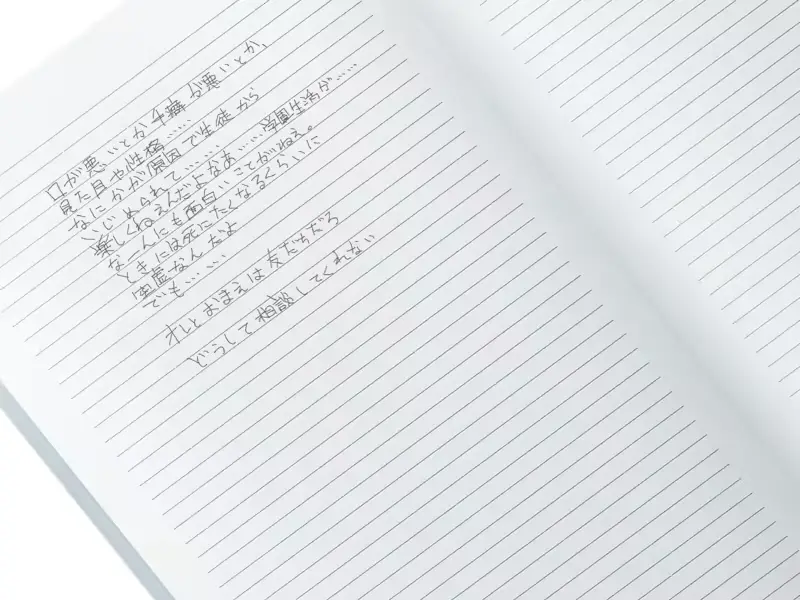 口が悪いとか手癖が悪いとか、
見た目や性格……
なにかが原因で生徒から
いじめられて……
楽しくねえんだよなあ……学園生活が……
なーんにも面白いことがねえ。
ときには死にたくなるくらいに
空虚なんだよ
でも……
オレとおまえは友だちだろ
どうして相談してくれない